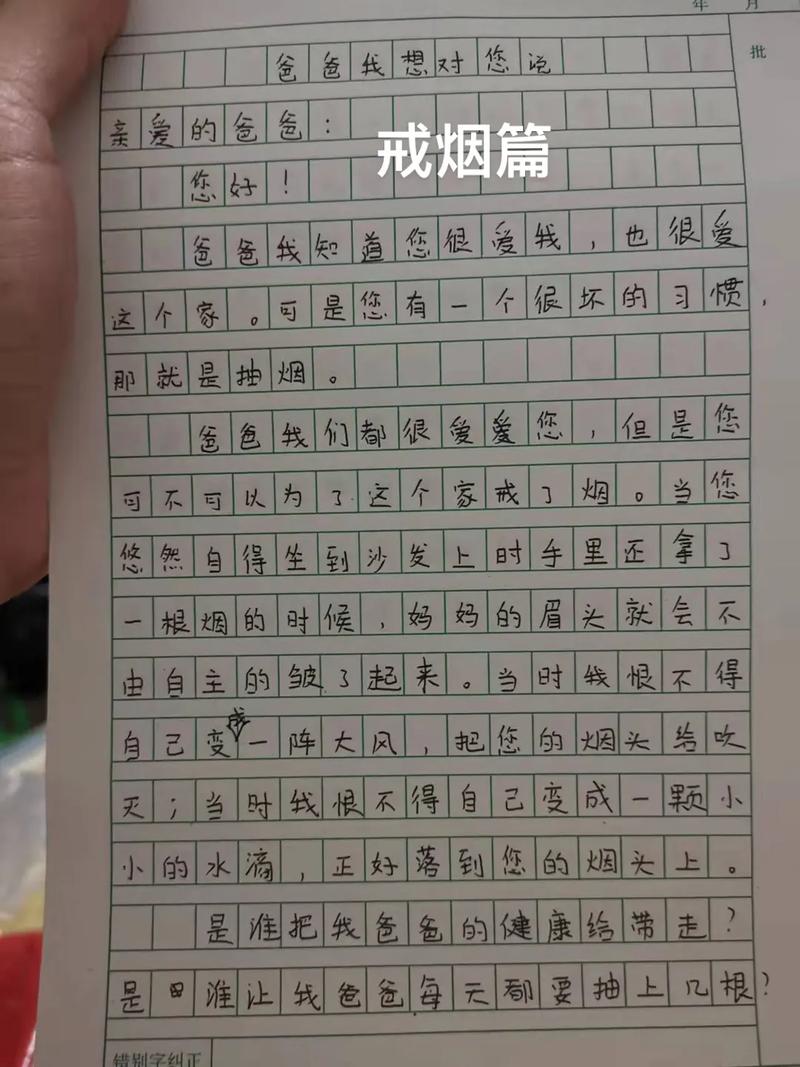 年 月
批
爸爸我想对您说
亲爱的爸爸：
戒烟篇
您好！
爸爸我知道您很爱我，也很爱
这个家。可是您有一个很坏的习惯，
那就是抽烟。
爸爸我们都很爱爱您，但是您
可不可以为了这个家戒了烟。当您
悠然自得坐到沙发上时手里还拿了
一根烟的时候，妈妈的眉头就会不
由自主的皱了起来。当时我恨不得
自己变成一阵大风，把您的烟头给吹
灭；当时我恨不得自己变成一颗小
小的水滴，正好落到您的烟头上。
是谁把我爸爸的健康给带走？
是谁让我爸爸每天都要抽上几根？
错别字纠正